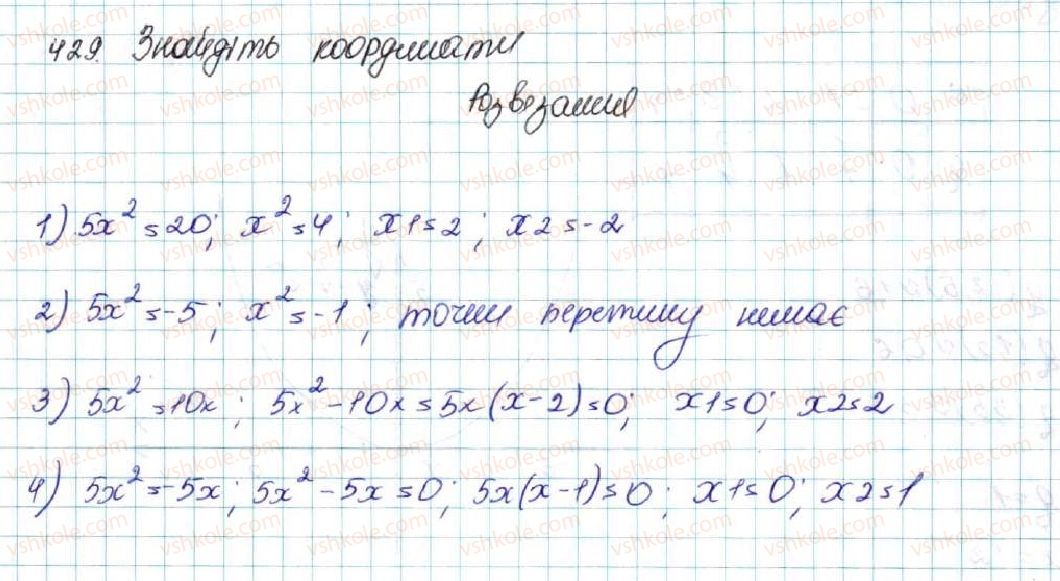 429. Знайдіть координати
Розвезання
1) 5x² = 20; x² = 4; x1 = 2; x2 = -2
2) 5x² = -5; x² = -1; точки перетину немає
3) 5x² = 10x; 5x² - 10x = 5x(x-2) = 0; x1 = 0; x2 = 2
4) 5x² = -5x; 5x² - 5x = 0; 5x(x-1) = 0; x1 = 0; x2 = 1